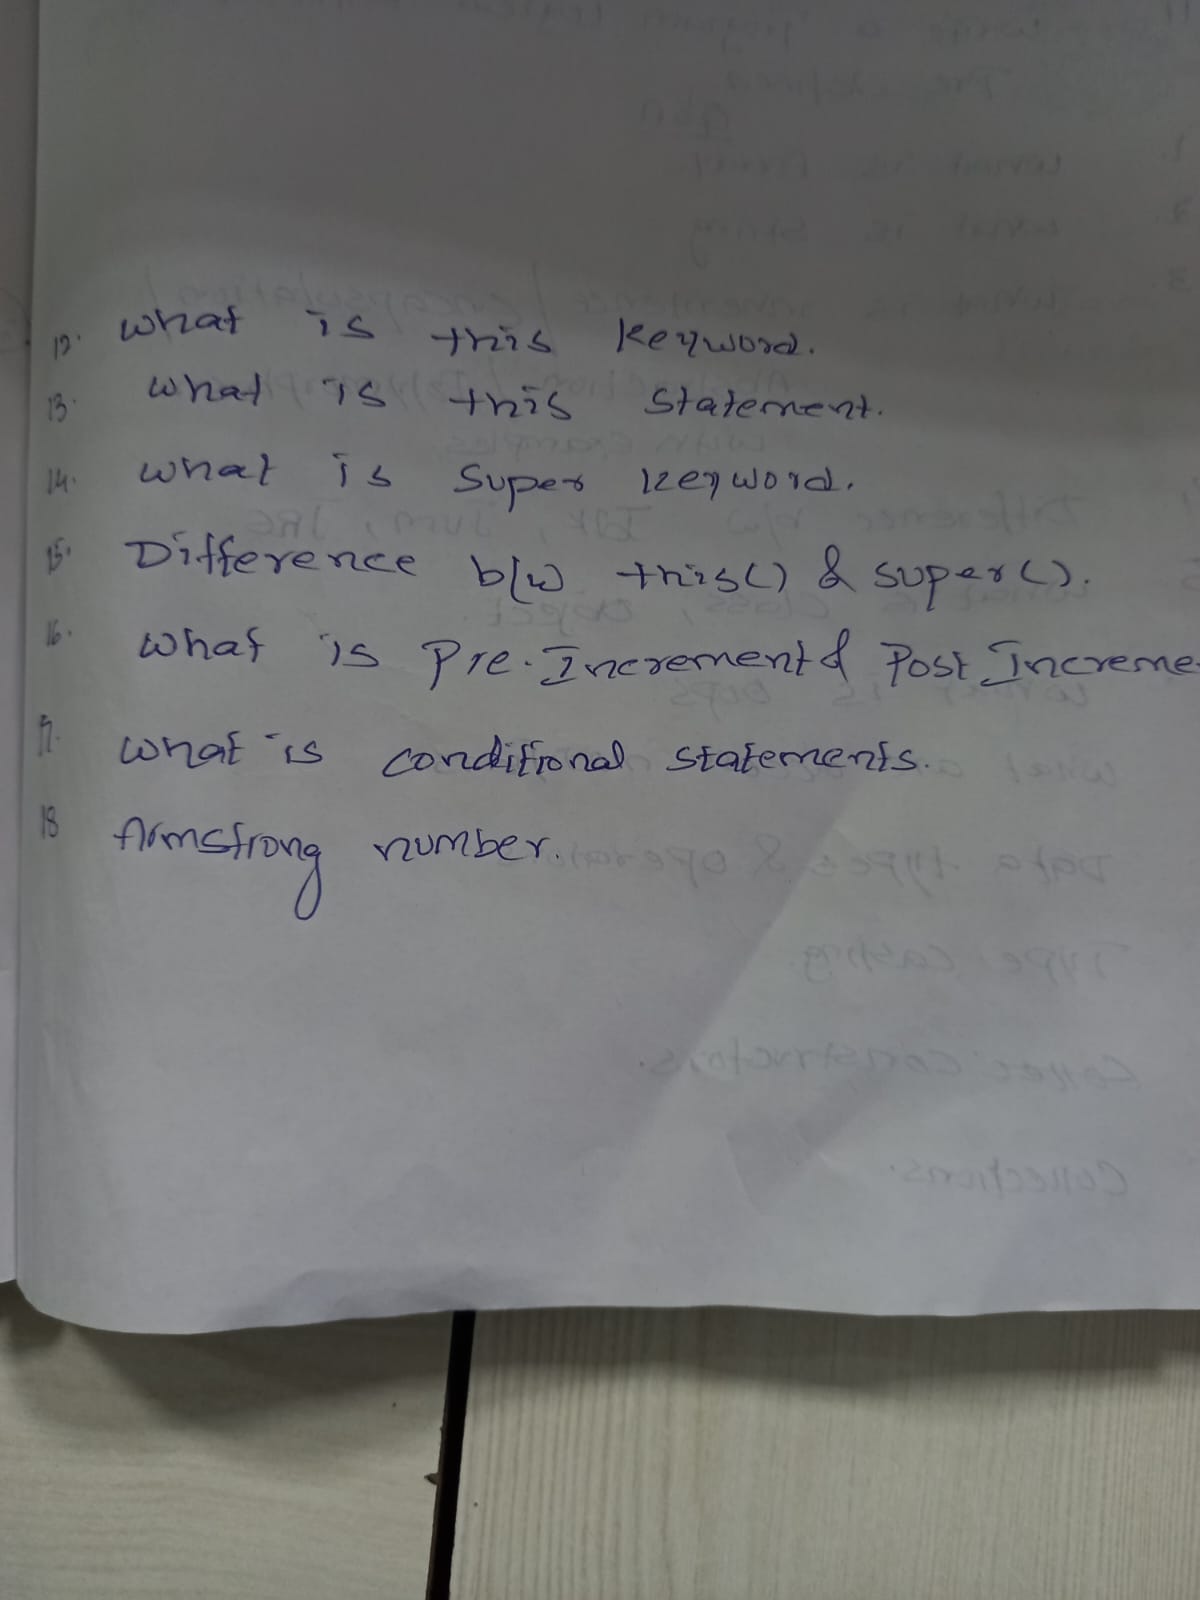 12. what is this keyword.
13. what is this statement.
14. what is super keyword.
15. Difference b/w this() & super().
16. what is Pre-Increment & Post Increme
17. what is conditional statements.
18 Armstrong number.